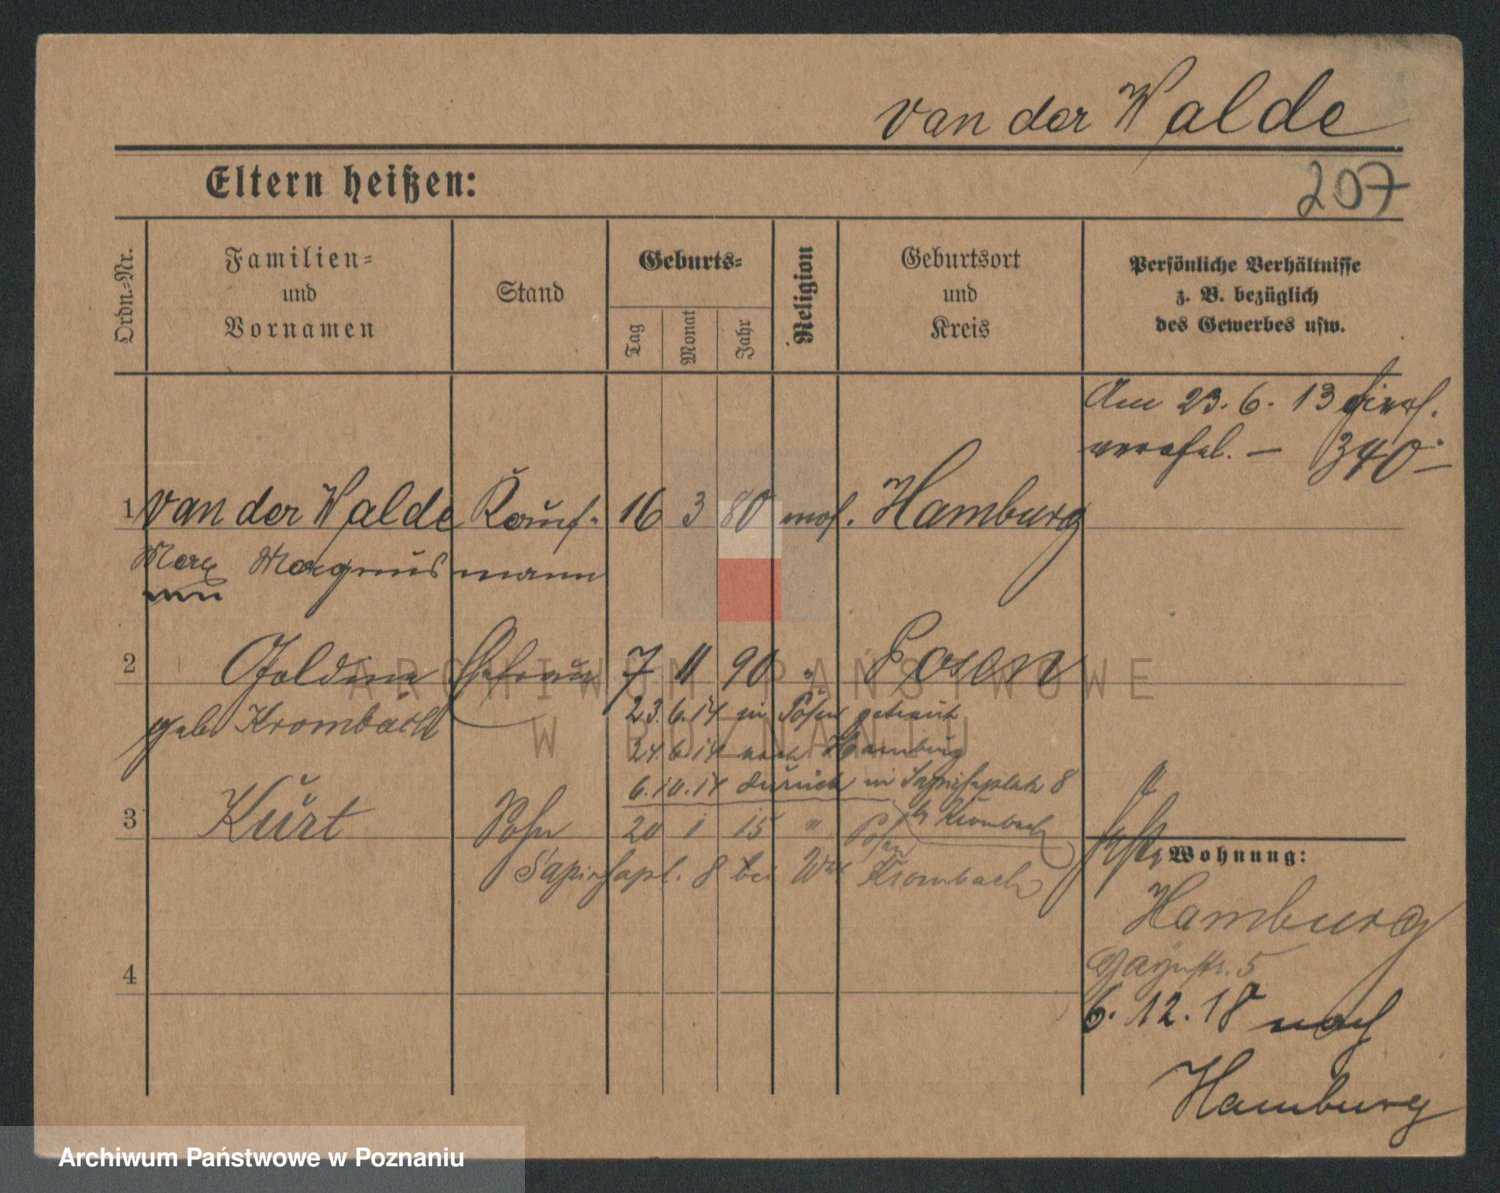 van der Walde
Eltern heißen:
207
Ordn.-Nr.
Familien-
und
Vornamen
Stand
Geburts-
Tag
Monat
Jahr
Religion
Geburtsort
und
Kreis
Persönliche Verhältnisse
z. B. bezüglich
des Gewerbes usw.
Am 23. 6. 13
340
1 van der Walde Kauf- 16 3 80 mos. Hamburg
Max Magnus mann
2 Goldine Ehefrau 7 11 90 " Posen
geb. Krombach
23.6.14 in Posen getraut
24.6.14 nach Hamburg
6.10.14 zurück in Sapiehaplatz 8
b/ Krombach
3 Kurt Sohn 20 1 15 " Posen
Sapiehapl. 8 bei Wwe Krombach
Wohnung:
Hamburg
4
6. 12. 18 nach
Hamburg
ARCHIWUM PAŃSTWOWE
W POZNANIU
Archiwum Państwowe w Poznaniu